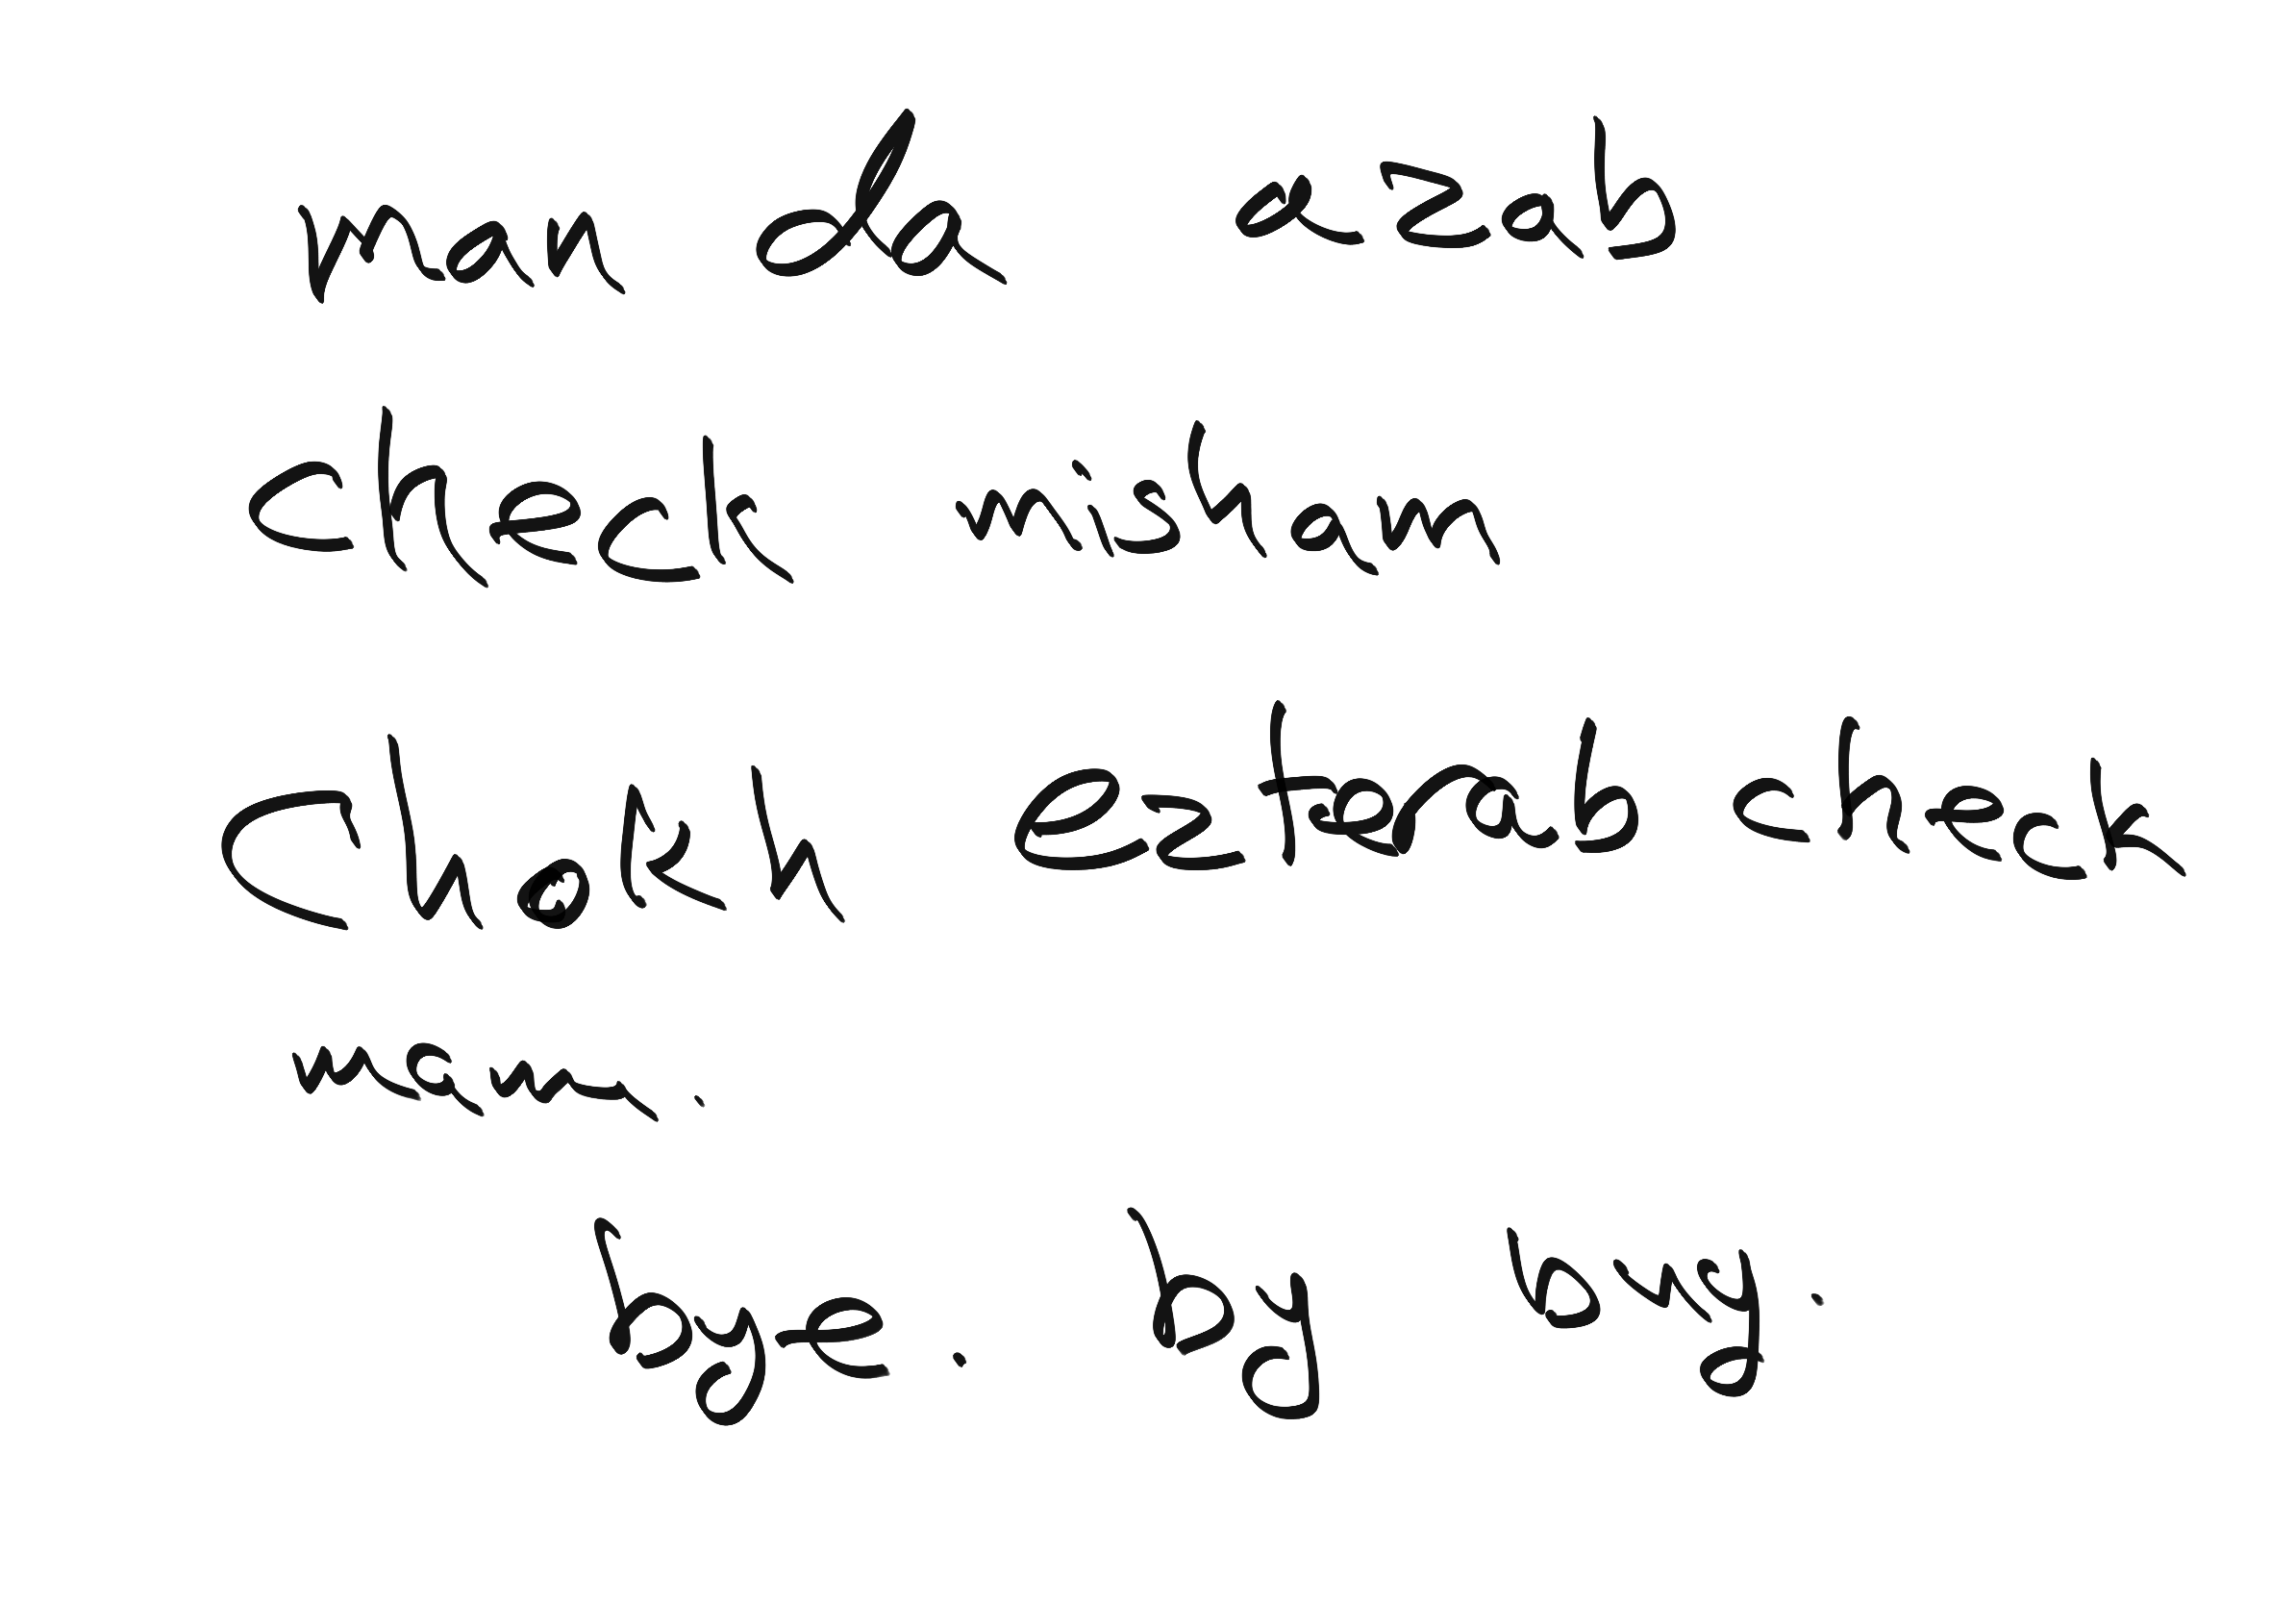 man da azab
check misham
chokh ezterab check
mam.
bye. by buy.